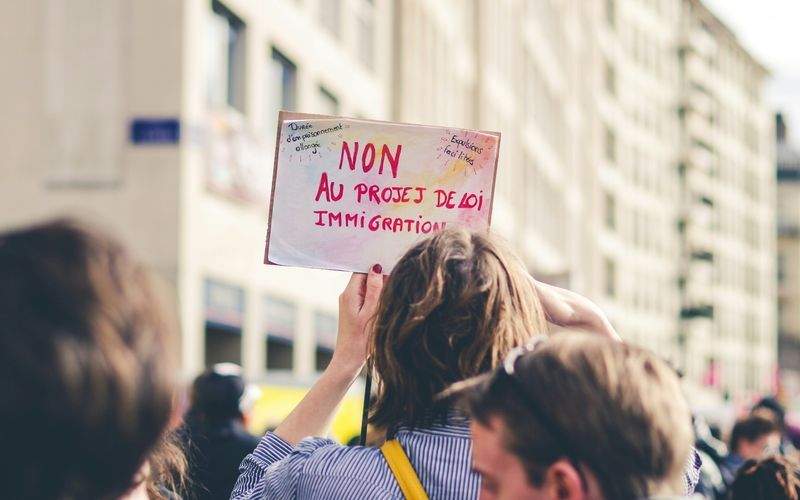 Durée
d'emprisonnement
allongée
Expulsions
facilités
NON
AU PROJEJ DE LOI
IMMIGRATION